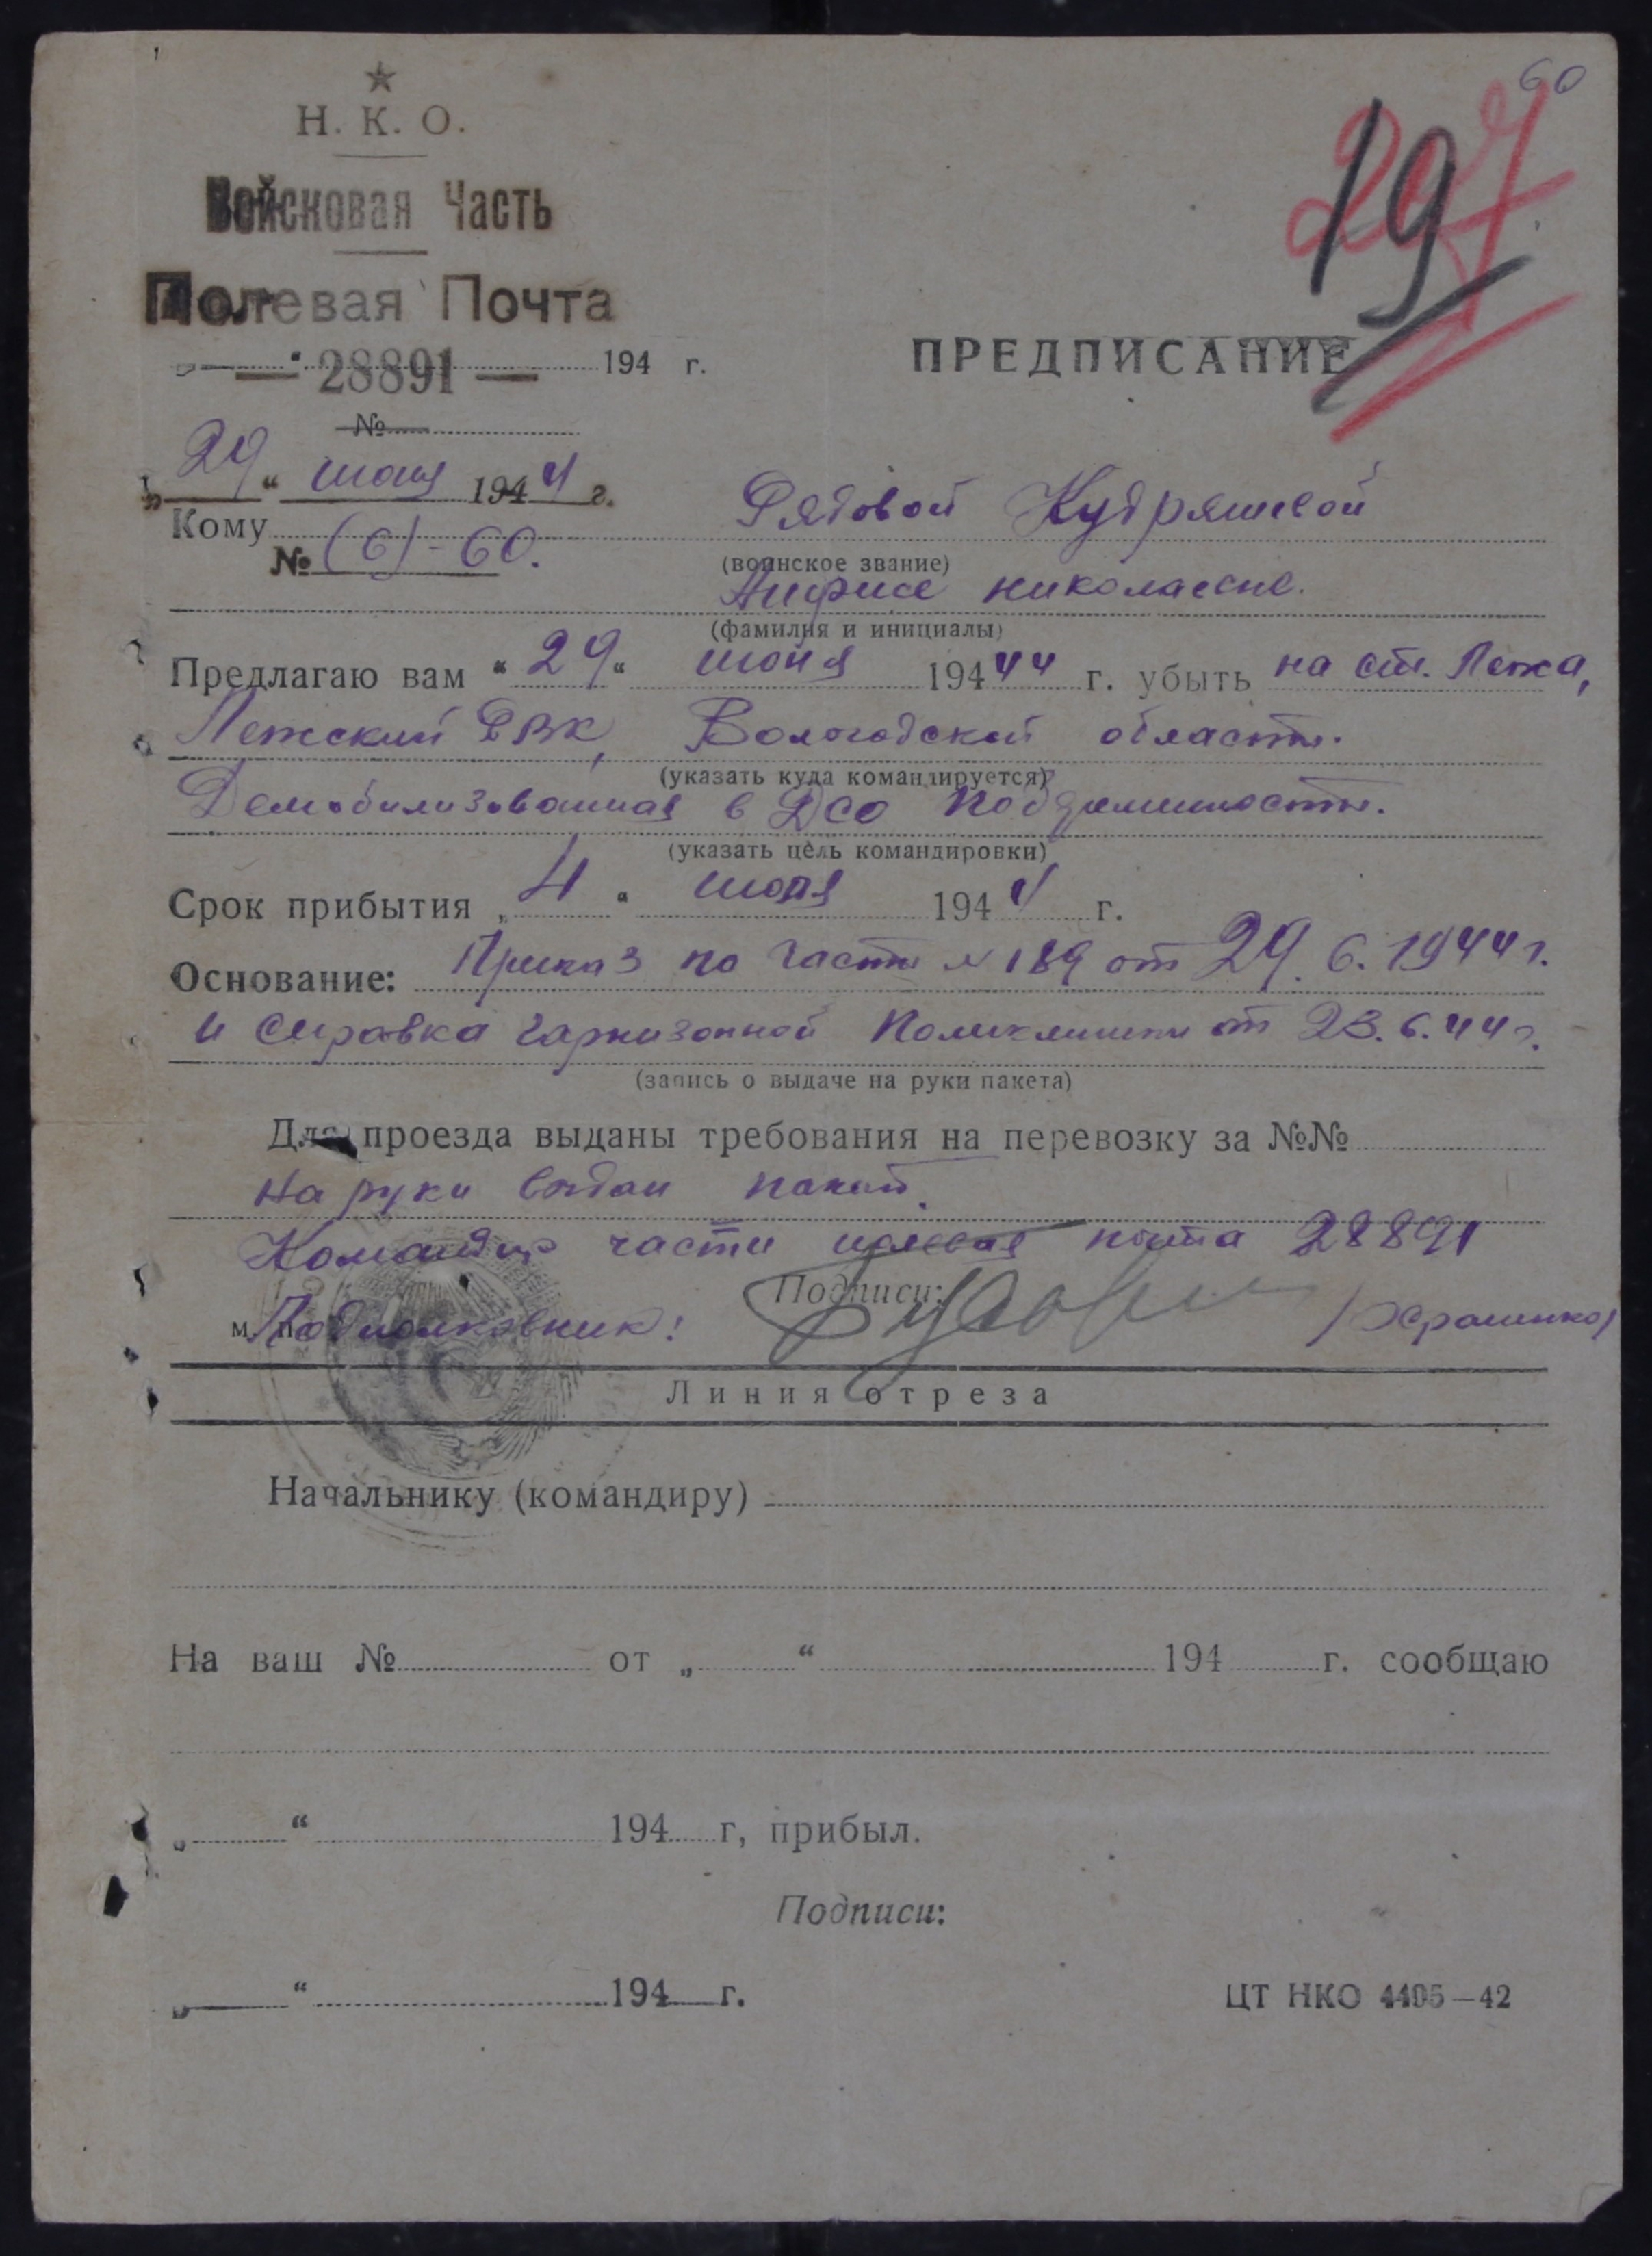 60
297
19
Н. К. О.
Войсковая Часть
Полевая Почта
— 28891 — 194 г.
ПРЕДПИСАНИЕ
№
„29“ июня 1944 г.
Кому Рядовой Кудряшевой
№ (6)-60.
(воинское звание)
Анфисе николаевне.
(фамилия и инициалы)
Предлагаю вам “29“ июня 194 44 г. убыть на ст. Лежа,
Лежский РВК, Вологодской области.
(указать куда командируется)
Демобилизованная в ДСО по беременности.
(указать цель командировки)
Срок прибытия „4“ июля 1944 г.
Основание: Приказ по части № 189 от 29.6.1944 г.
и справка гарнизонной Поликлиники от 23.6.44 г.
(запись о выдаче на руки пакета)
Для проезда выданы требования на перевозку за №№
На руки выдан пакет.
Командир части полевая почта 28891
Подписи:
м. п. Подполковник:
Линия отреза
Начальнику (командиру)
На ваш № от „ “ 194 г. сообщаю
„ “ 194 г, прибыл.
Подписи:
„ “ 194 г.
ЦТ НКО 4405—42